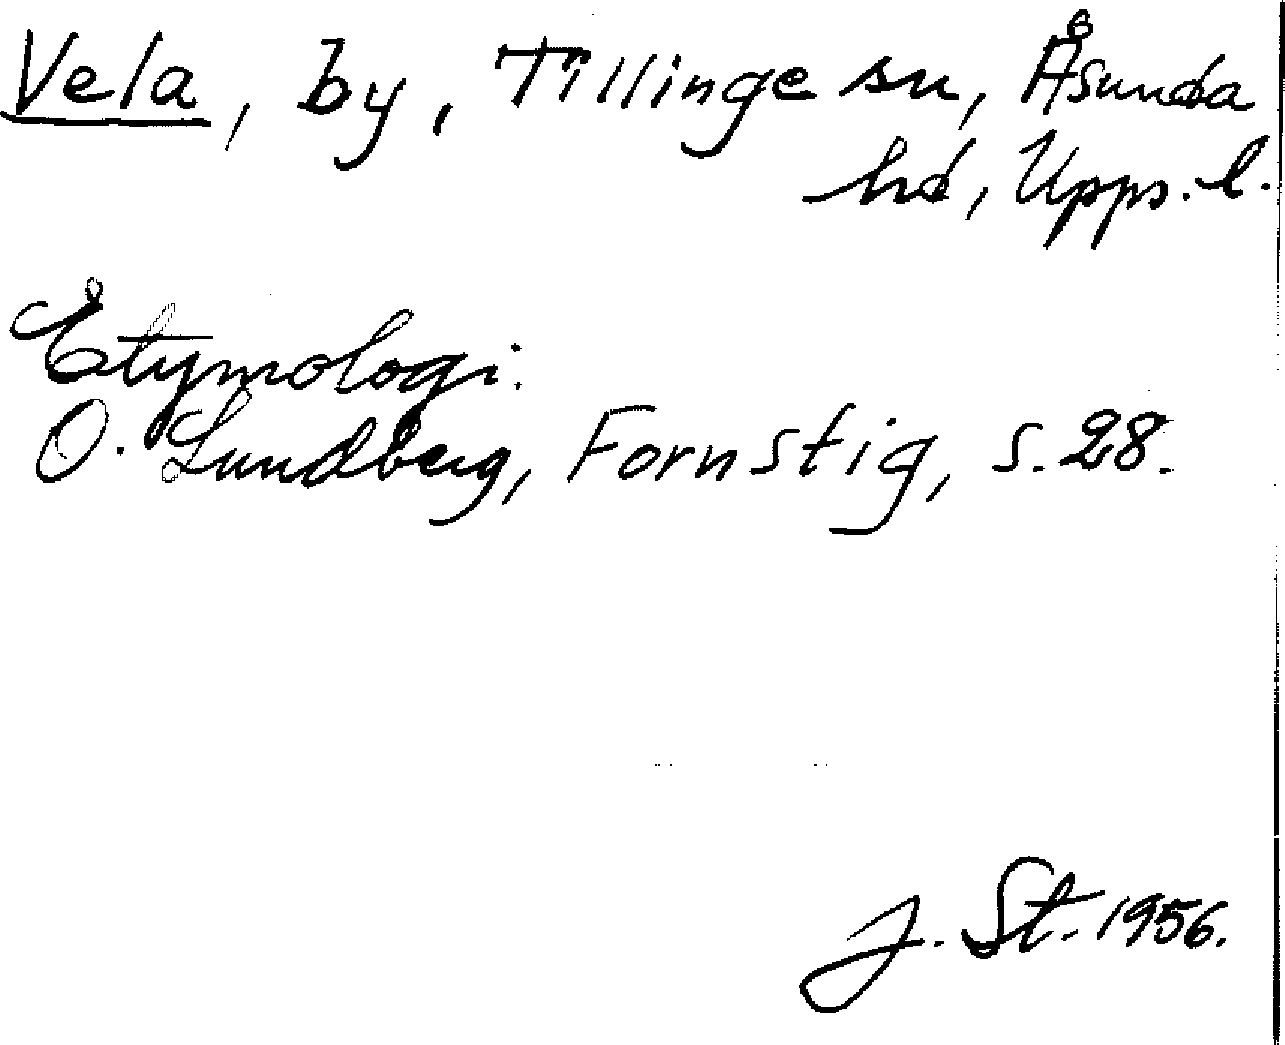 Vela, by, Tillinge sn, Åsunda
hd, Upps. l.
Etymologi:
O. Lundberg, Fornstig, s. 28.
J. St. 1956.